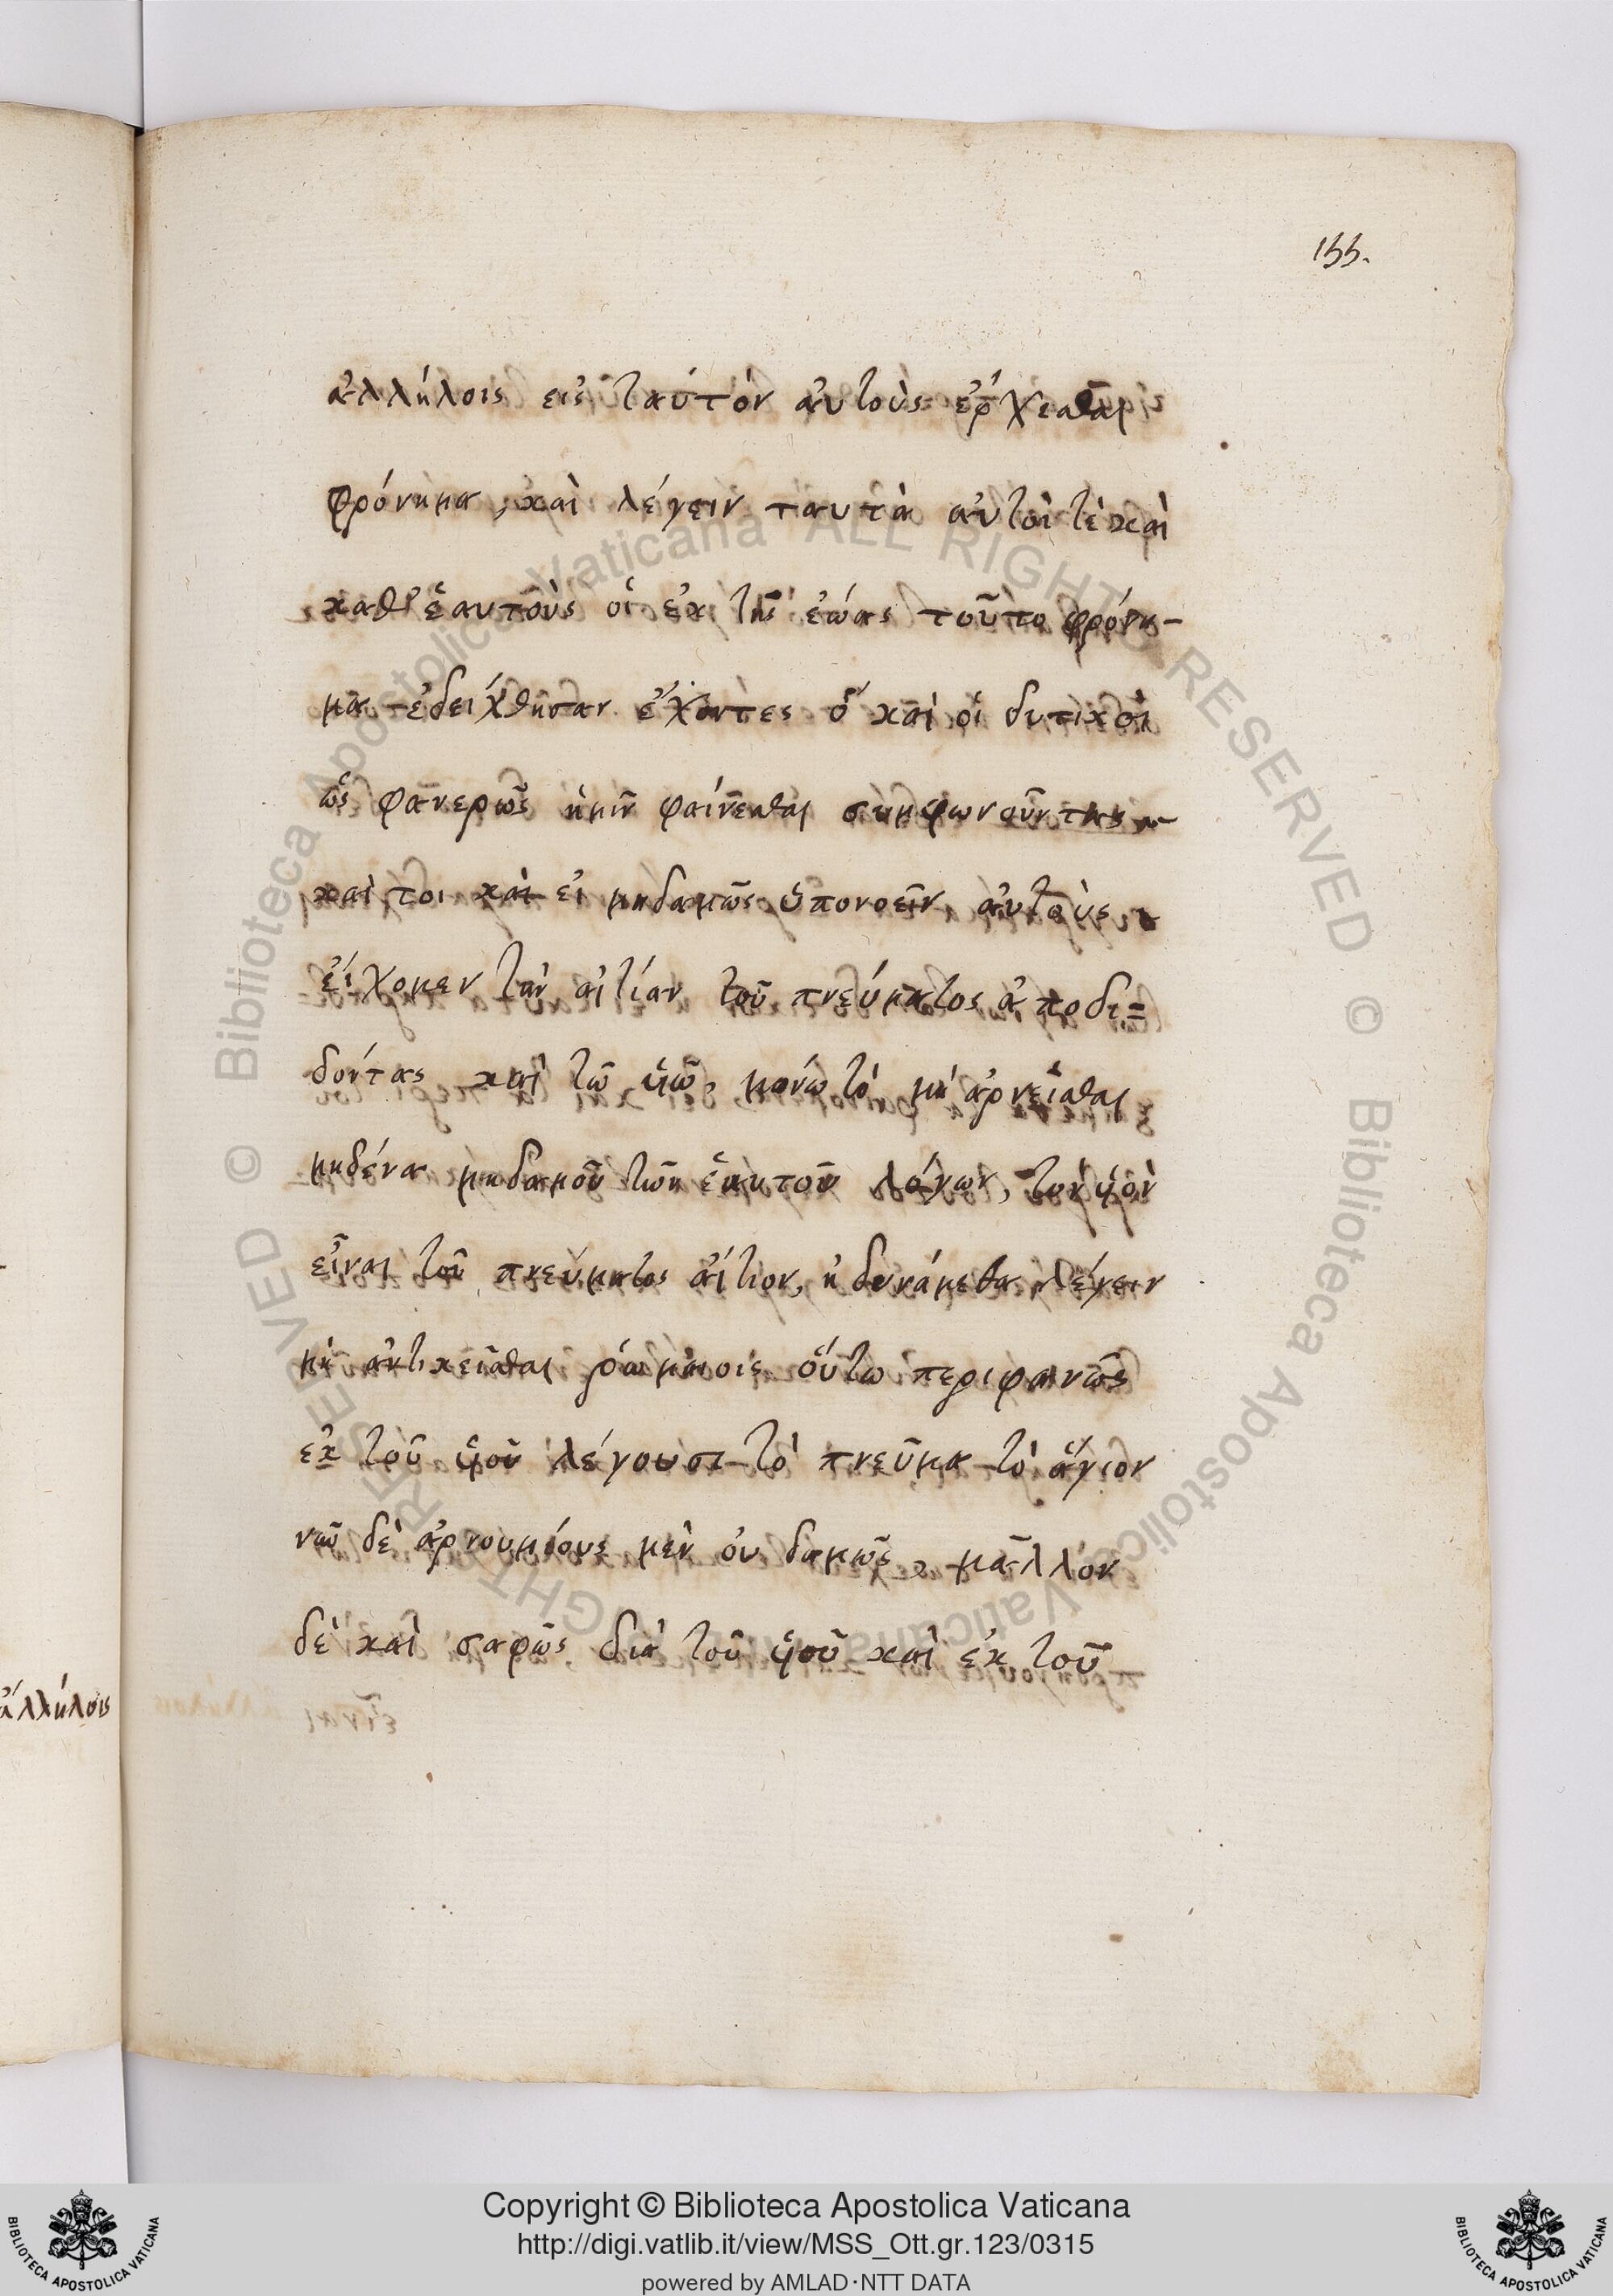 155.
ἀλλήλοις εἰς ταὐτὸν αὐτοὺς ἔρχεσθαι
φρόνημα, καὶ λέγειν ταυτὰ αὐτοὶ τὲ καὶ
καθ' ἑαυτοὺς οἱ ἐκ τῆς ἑώας τοῦτο φρόνη-
μα ἐδείχθησαν ἔχοντες ὅ καὶ οἱ δυτικοὶ
ὡς φανερῶς ἡμῖν φαίνεσθαι συμφωνοῦντας
καὶ τοι καὶ εἰ μηδαμῶς ὑπονοεῖν αὐτοὺς
εἴχομεν τὴν αἰτίαν τοῦ πνεύματος ἀποδι=
δόντας καὶ τῶ υἱῶ, μόνω τὸ μὴ ἀρνεῖσθαι
μηδένα μηδαμοῦ τῶν ἑαυτοῦ λόγων, τὸν υἱὸν
εἶναι τοῦ πνεύματος αἴτιον, ἠδυνάμεθα λέγειν
μὴ ἀντικεῖσθαι ῥωμαίοις οὕτω περιφανῶς
ἐκ τοῦ υἱοῦ λέγουσι τὸ πνεῦμα τὸ ἅγιον
νῦν δὲ ἀρνουμένους μὲν οὐδαμῶς, μᾶλλον
δὲ καὶ σαφῶς διὰ τοῦ υἱοῦ καὶ ἐκ τοῦ
ἀλλήλοις
© Biblioteca Apostolica Vaticana ALL RIGHTS RESERVED
© Biblioteca Apostolica Vaticana ALL RIGHTS RESERVED
Copyright © Biblioteca Apostolica Vaticana
http://digi.vatlib.it/view/MSS_Ott.gr.123/0315
powered by AMLAD·NTT DATA
BIBLIOTECA APOSTOLICA VATICANA
BIBLIOTECA APOSTOLICA VATICANA